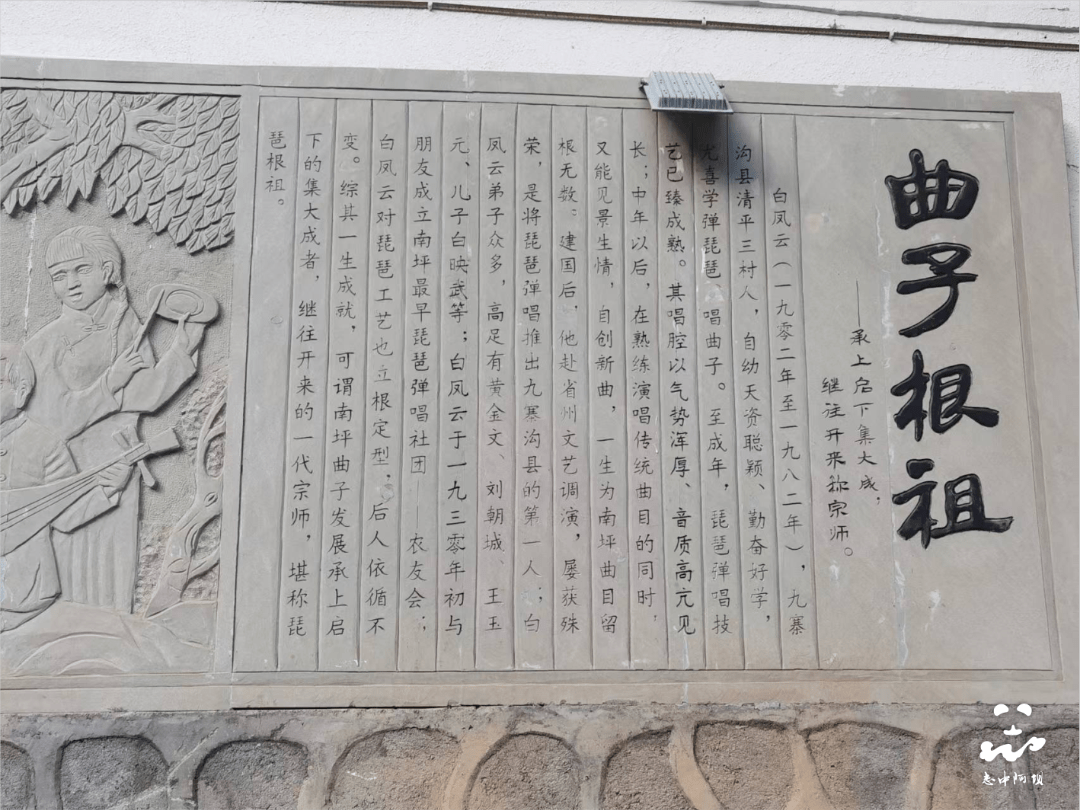 曲子根祖
——承上启下集大成，
继往开来称宗师。
白凤云（一九零二年至一九八二年），九寨
沟县清平三村人，自幼天资聪颖、勤奋好学，
尤喜学弹琵琶、唱曲子。至成年，琵琶弹唱技
艺已臻成熟。其唱腔以气势浑厚、音质高亢见
长；中年以后，在熟练演唱传统曲目的同时，
又能见景生情，自创新曲，一生为南坪曲目留
根无数；建国后，他赴省州文艺调演，屡获殊
荣，是将琵琶弹唱推出九寨沟县的第一人；白
凤云弟子众多，高足有黄金文、刘朝城、王玉
元、儿子白映武等；白凤云于一九三零年初与
朋友成立南坪最早琵琶弹唱社团——农友会；
白凤云对琵琶工艺也立根定型，后人依循不
变。综其一生成就，可谓南坪曲子发展承上启
下的集大成者，继往开来的一代宗师，堪称琵
琶根祖。
志中阿坝